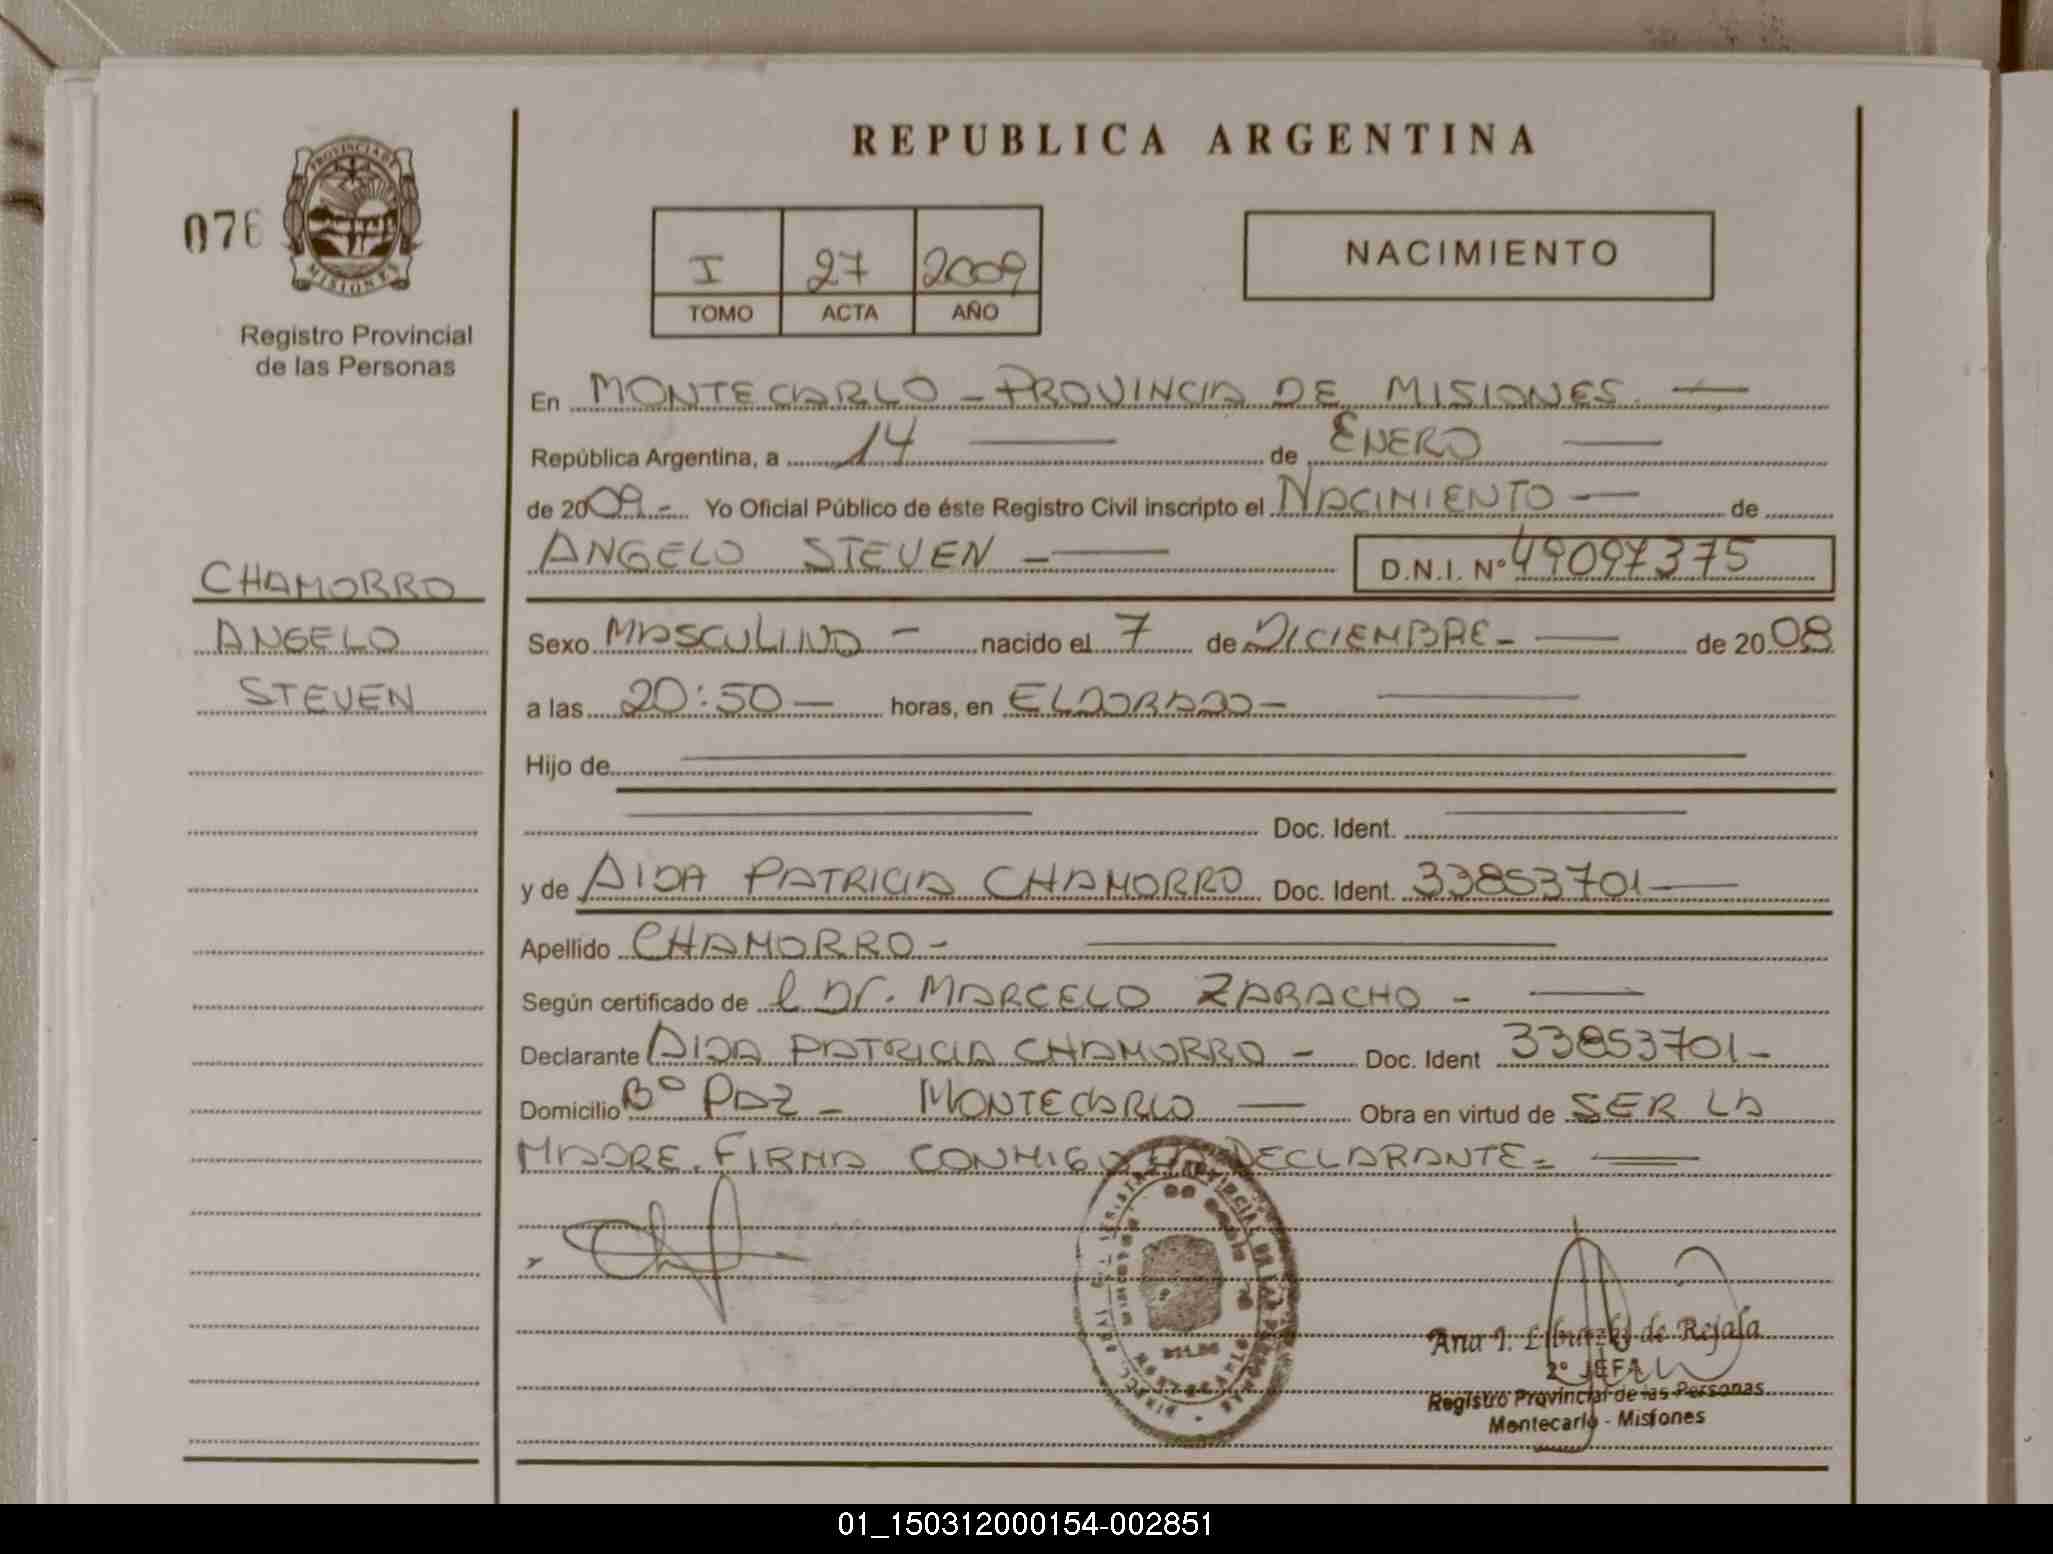 REPUBLICA ARGENTINA
076
PROVINCIA DE
MISIONES
Registro Provincial
de las Personas
I 27 2009
TOMO ACTA AÑO
NACIMIENTO
En MONTECARLO - PROVINCIA DE MISIONES. —
República Argentina, a 14 — de ENERO —
de 2009.- Yo Oficial Público de éste Registro Civil inscripto el NACIMIENTO — de
ANGELO STEVEN - — D.N.I. Nº 49097375
CHAMORRO
ANGELO
STEVEN
Sexo MASCULINO - nacido el 7 de DICIEMBRE - — de 2008
a las 20:50 — horas, en ELDORADO - —
Hijo de —
— Doc. Ident. —
y de AIDA PATRICIA CHAMORRO Doc. Ident. 33853701 —
Apellido CHAMORRO - —
Según certificado de l Dr. MARCELO ZARACHO - —
Declarante AIDA PATRICIA CHAMORRO - Doc. Ident 33853701 -
Domicilio Bº PAZ - MONTECARLO — Obra en virtud de SER LA
MADRE. FIRMA CONMIGO LA DECLARANTE = —
Ana I. de Rejala
2º JEFA
Registro Provincial de las Personas
Montecarlo - Misiones
01_150312000154-002851